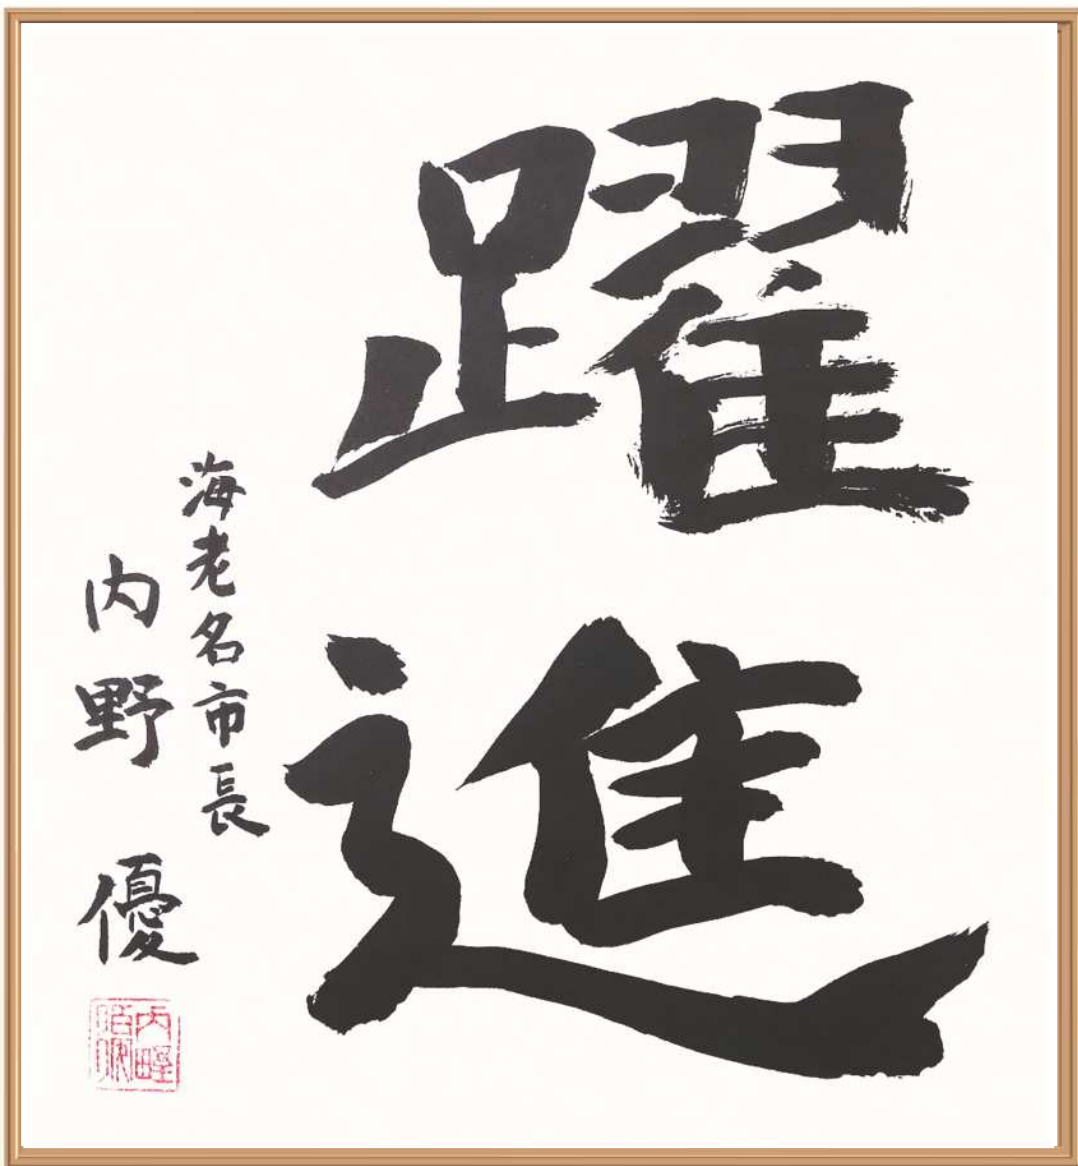 躍進
海老名市長
内野優